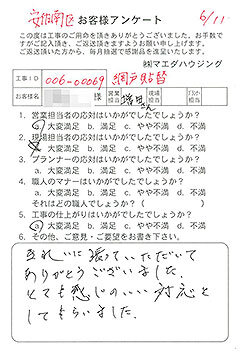 安佐南区 お客様アンケート 6/11
この度は工事のご用命を頂きありがとうございました。お手数で
すがご記入頂き、ご返送頂きますようお願い申し上げます。
ご返送頂いた方から、毎月抽選で感謝品を進呈いたします。
㈱マエダハウジング
工事ID 006-00069 網戸貼替
お客様名 営業担当 増田さん 現場担当 担当
1. 営業担当者の応対はいかがでしたでしょうか?
a. 大変満足 b. 満足 c. やや不満 d. 不満
2. 現場担当者の応対はいかがでしたでしょうか?
a. 大変満足 b. 満足 c. やや不満 d. 不満
3. プランナーの応対はいかがでしたでしょうか?
a. 大変満足 b. 満足 c. やや不満 d. 不満
4. 職人のマナーはいかがでしたでしょうか?
a. 大変満足 b. 満足 c. やや不満 d. 不満
それはどの職人でしょうか?( )
5. 工事の仕上がりはいかがでしたでしょうか?
a. 大変満足 b. 満足 c. やや不満 d. 不満
6. その他、ご意見・ご要望をお書き下さい。
きれいに張っていただいて
ありがとうございました。
とても感じのいい対応を
してもらいました。